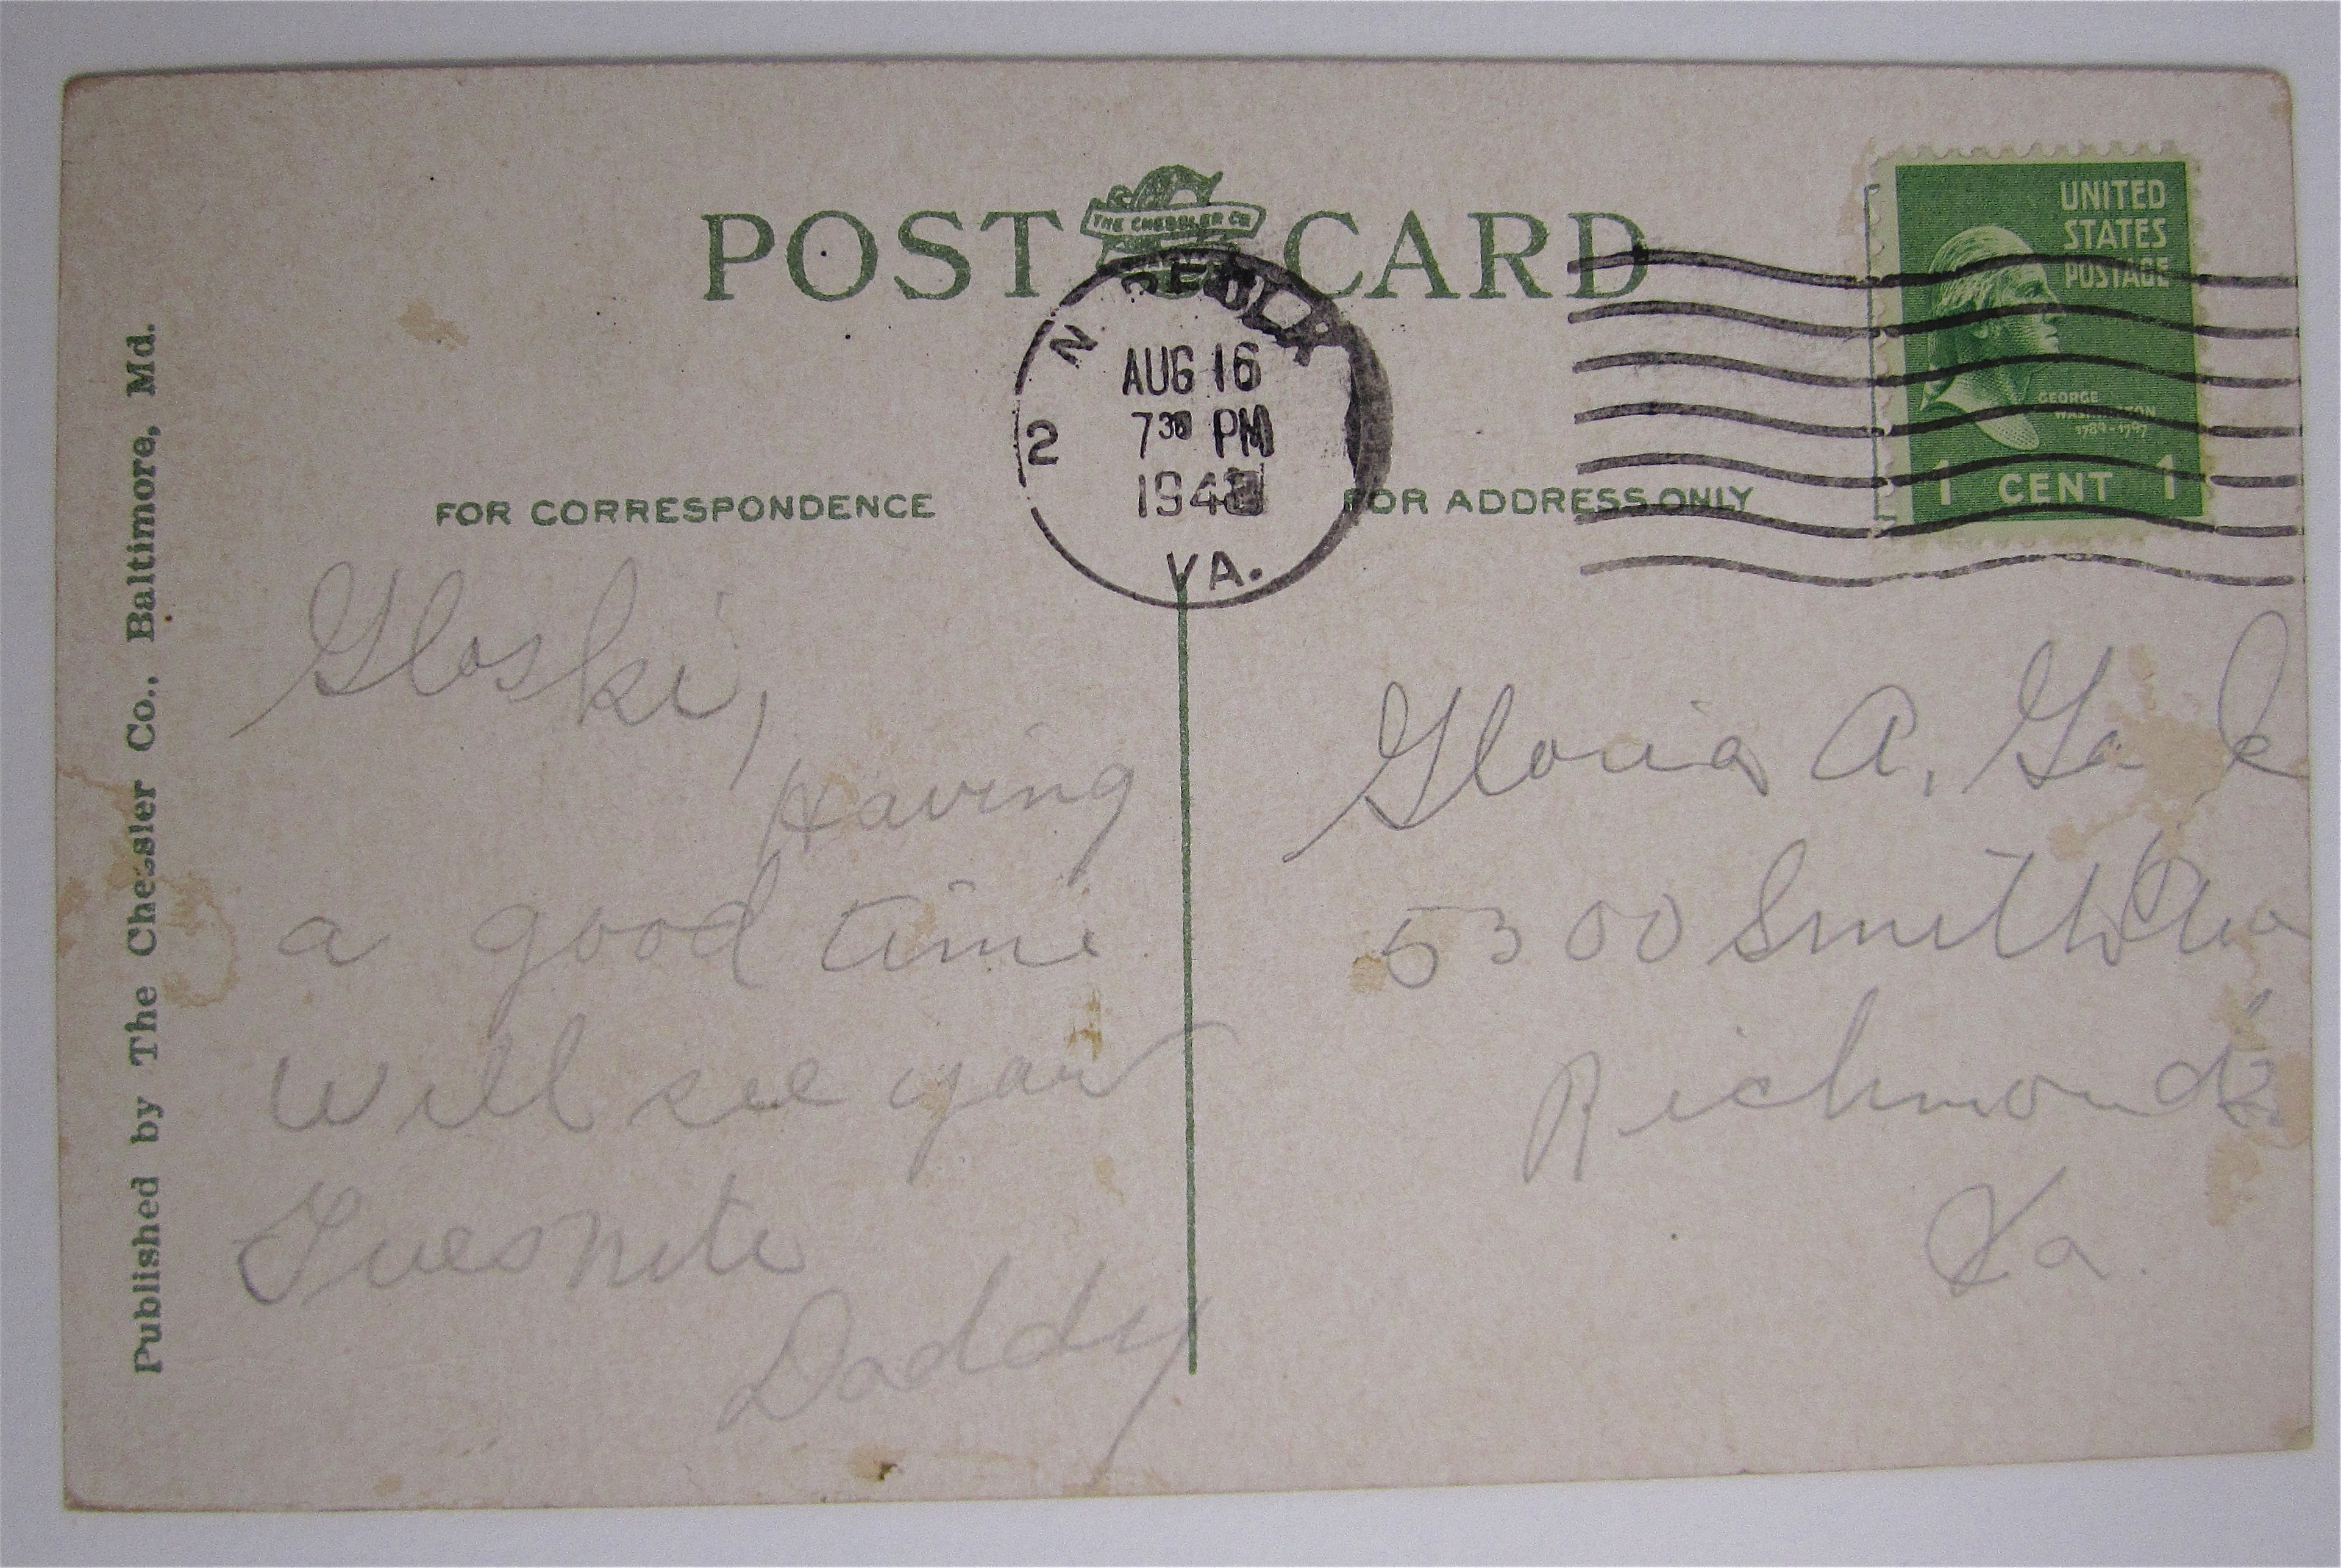 POST CARD
THE CHESSLER CO.
UNITED
STATES
POSTAGE
GEORGE
WASHINGTON
1789-1797
1 CENT 1
AUG 16
7 30 PM
2
VA.
FOR CORRESPONDENCE
FOR ADDRESS ONLY
Published by The Chessler Co., Baltimore, Md.
Gloski,
Having
a good time
Will see you
Tues nite
Daddy
Gloria A.
5300 Smith
Richmond
Va.